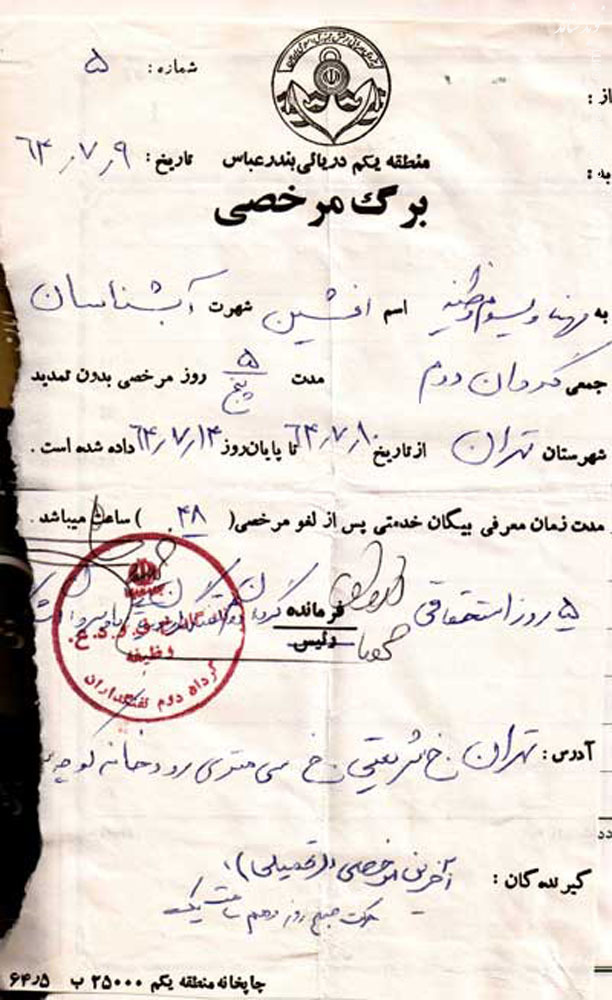 شماره : ۵
از :
منطقه یکم دریائی بندرعباس
تاریخ : ۶۴٫۷٫۹
به :
برگ مرخصی
به مهناوی سوم وظیفه اسم افشین شهرت آبشناسان
جمعی گردان دوم مدت ۵ پنج روز مرخصی بدون تمدید
شهرستان تهران از تاریخ ۶۴٫۷٫۱۰ تا پایان روز ۶۴٫۷٫۱۴ داده شده است .
مدت زمان معرفی بیگان خدمتی پس از لغو مرخصی ( ۴۸ ) ساعت میباشد .
۵ روز استحقاقی
فرمانده
رئیس
وظیفه
گردان دوم تفنگداران
آدرس : تهران خ شریعتی خ سی متری رودخانه کوچه
گیرندگان : آخرین مرخصی (تحصیلی)،
حرکت صبح روز دهم ساعت یک
چاپخانه منطقه یکم ۲۵۰۰۰ ب ۶۴٫۵